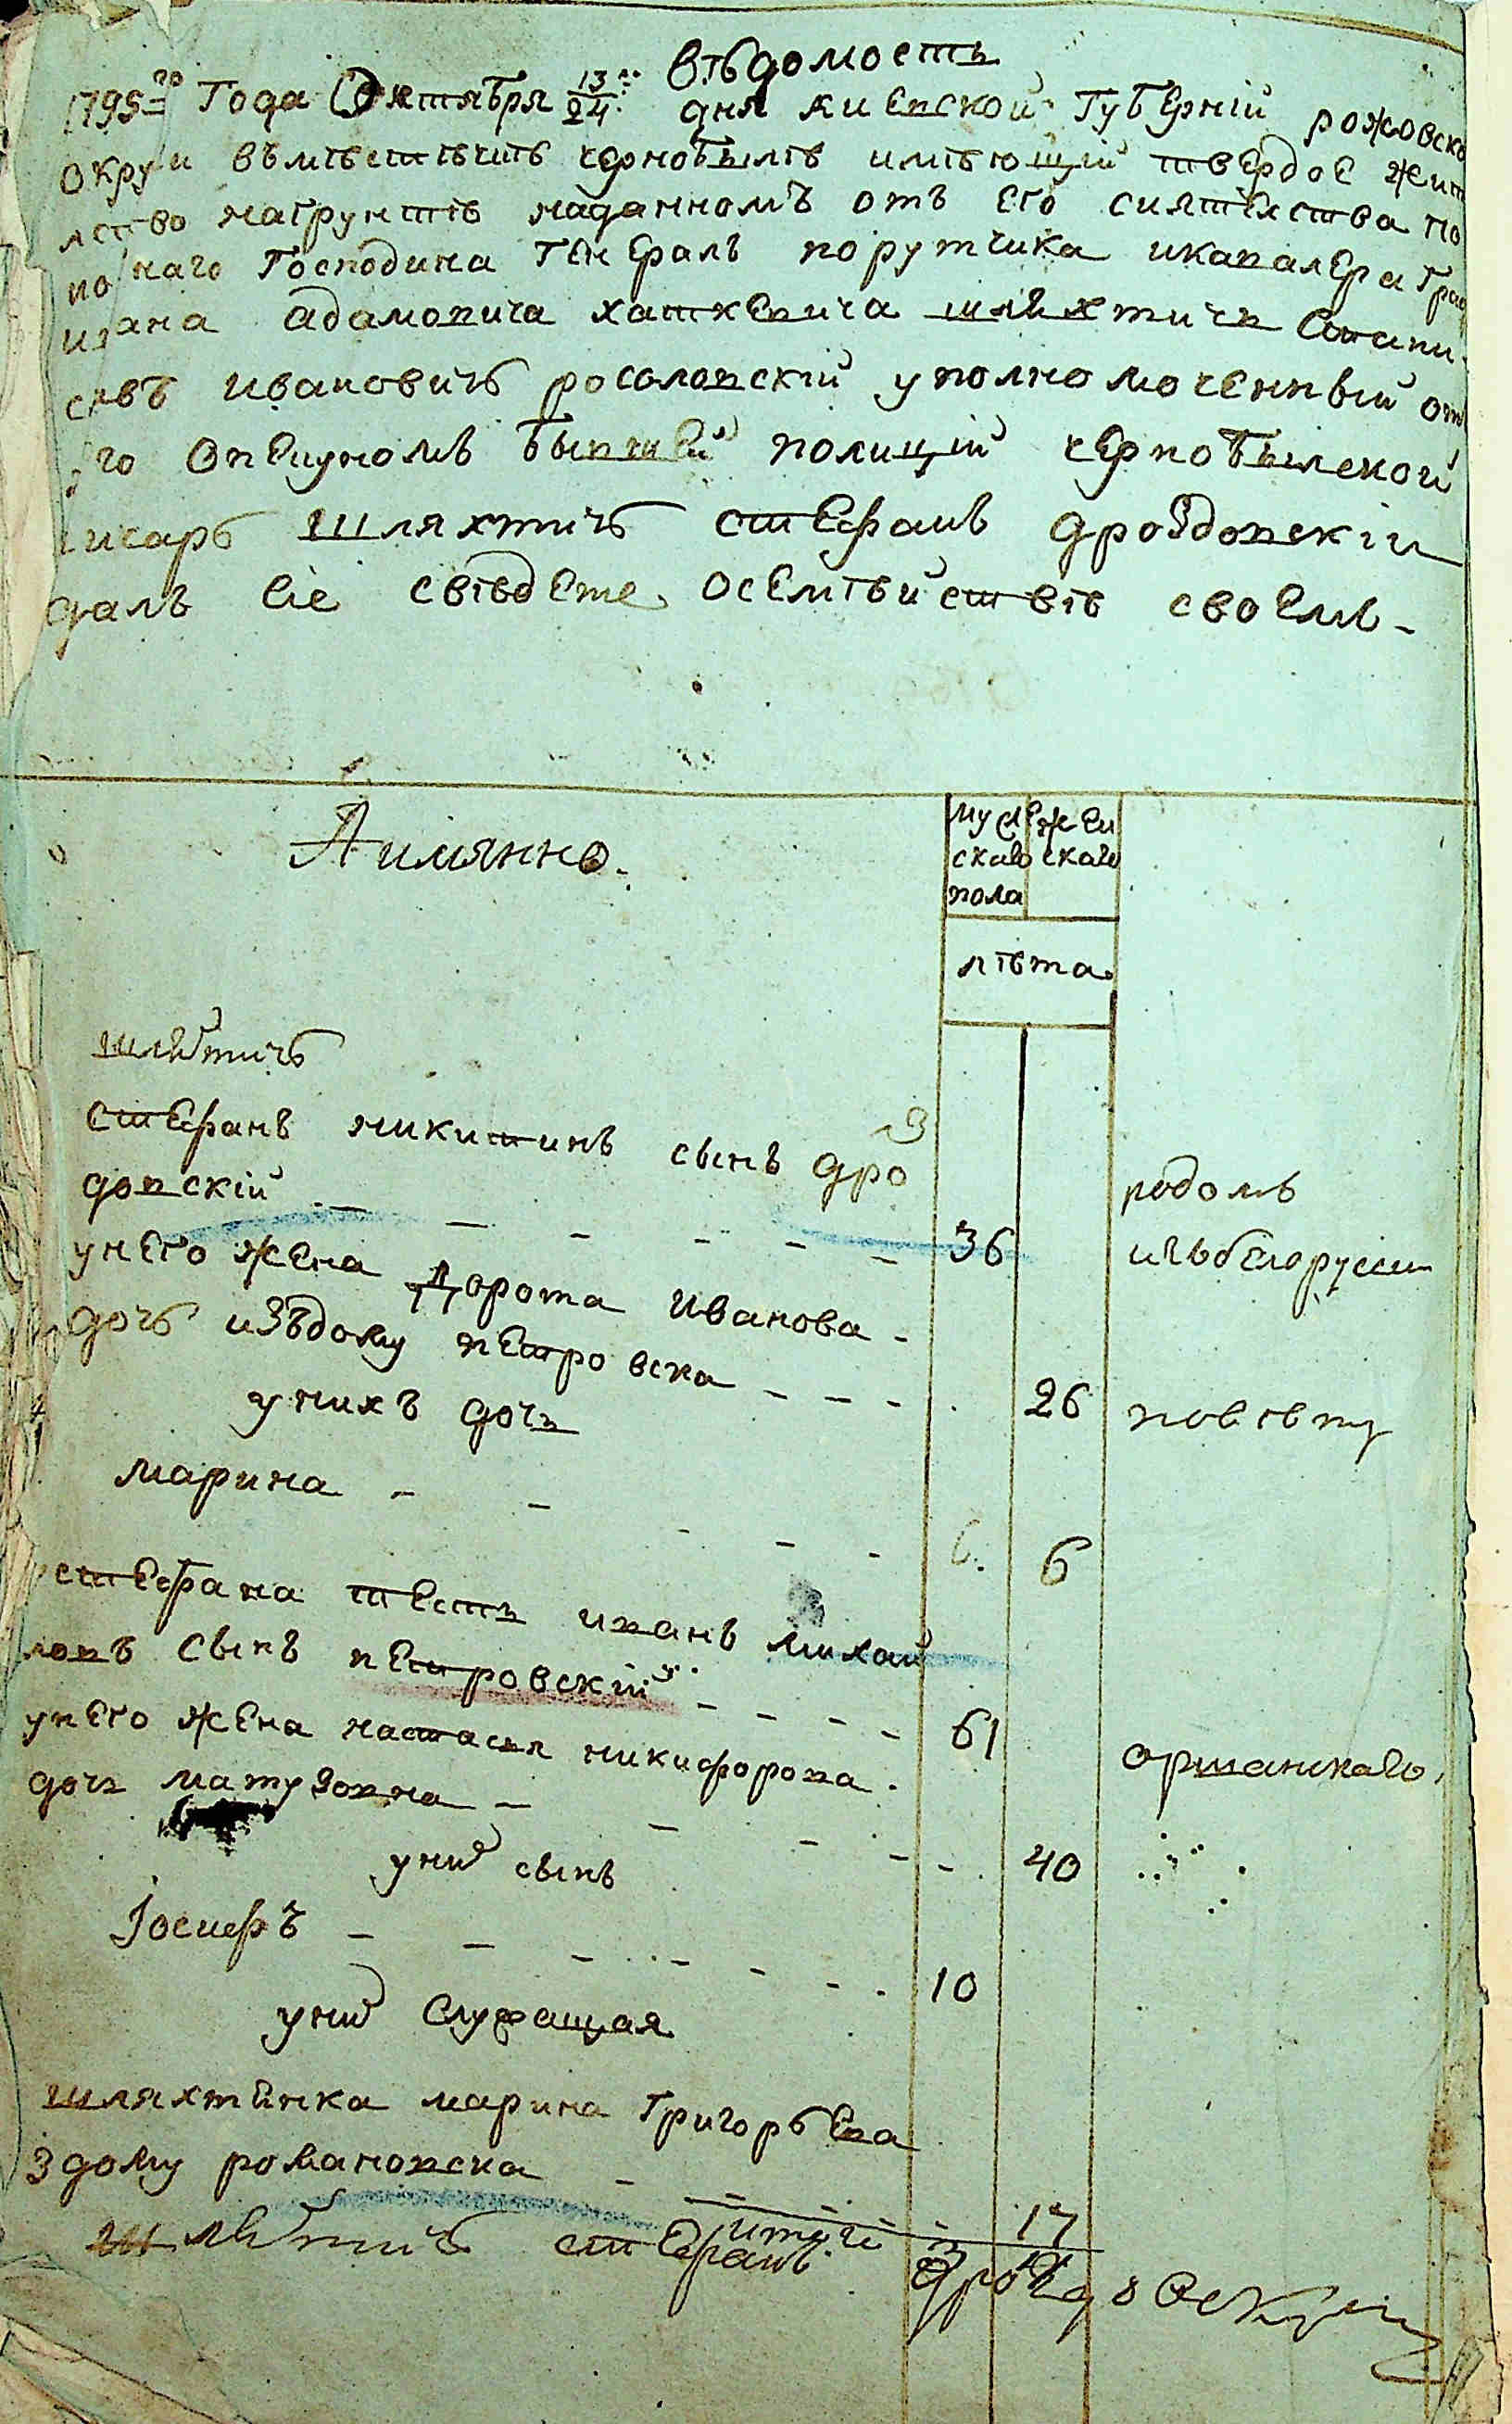 Вѣдомость
1795го Года Октября 13/24 дня киевской Губерній рожовско
округи въмѣстѣчкѣ чернобылѣ имѣющій твердое жит
лство нагрунтѣ наданномъ отъ его сиятелства по
по наго Господина Генералъ порутчика икавалера Гра
ивана адамовича хаткевича шляхтичь Стани
славъ ивановичъ росоловскій уполномоченный от
его опекуномъ бывшей полицій чернобылской
писарь шляхтичъ стефанъ дроздовскій
далъ сіе свѣдете осемѣйствѣ своемъ
Аимянно.
муже жен
скаго скаго
пола
лѣта
шляхтичъ
стефанъ никитинъ сынъ дроз
довскій 36
родомъ
изъбелорусіи
унего жена Дорота иванова
дочь изъдому петровска 26
повѣту
унихъ дочь
марина 6
стефана тесть иванъ михай
ловъ сынъ петровскій 61
оршанскаго
унего жена настасья никифорова
дочь матузовна 40
уних сынъ
Іосифъ 10
уних служащая
шляхтянка марина Григорьева
здому романовска 17
итого 3 4
шляхтичъ стефанъ дроздовскій